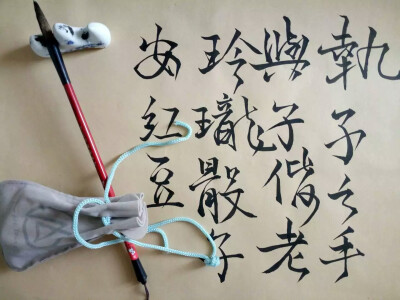 執子之手
與子偕老
玲瓏骰子
安紅豆